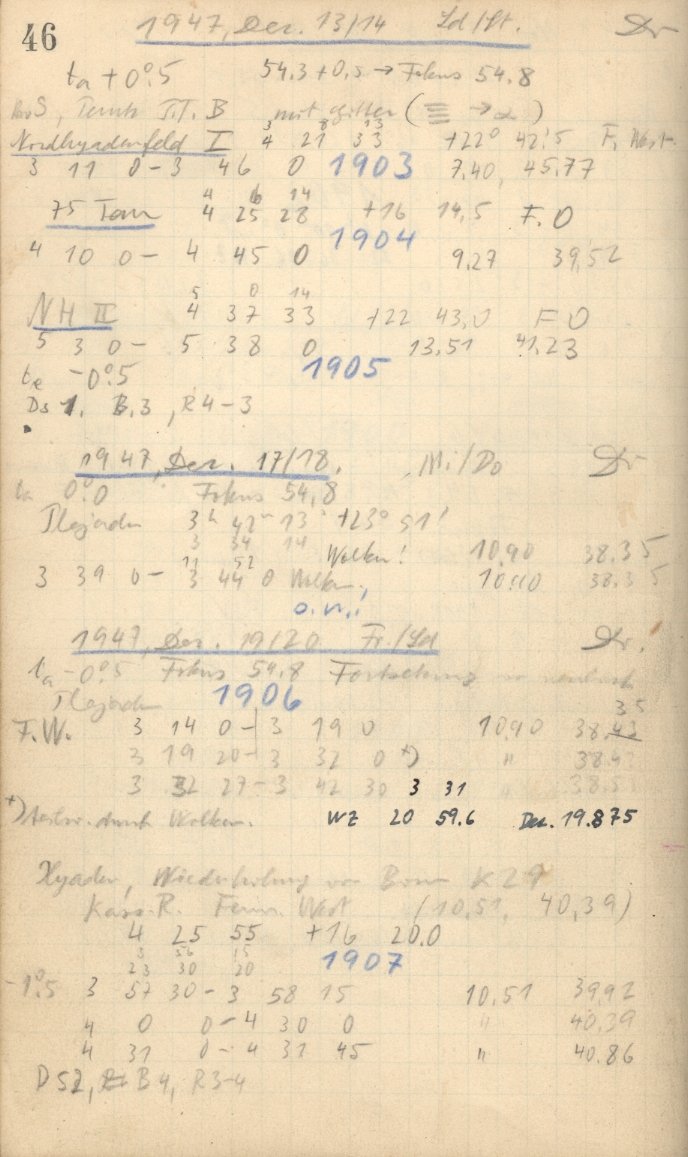 46
1947, Dez. 13/14 Sd/St. Dr
ta + 0°.5 54.3 + 0,5 → Fokus 54.8
T.T. B mit Gitter ( → )
3 8 13
Nordhyadenfeld I 4 21 33 +22° 42!5 F. West
3 11 0 - 3 46 0 1903 7,40, 45,77
4 6 14
75 Tau 4 25 28 +16 14,5 F.O
4 10 0 - 4 45 0 1904 9,27 39,52
5 0 14
NH II 4 37 33 +22 43,0 F O
5 3 0 - 5 38 0 13,51 41,23
te - 0°.5 1905
Ds 1. B.3, R 4-3
1947, Dez. 17/18. Mi/Do Dr
ta 0°.0 Fokus 54,8
Plejaden 3h 42m 13s +23° 51'
3 34 14 Wolken! 10,90 38,35
11 52
3 39 0 - 3 44 0 Wolken, 10,90 38,35
o.n.!
1947, Dez. 19/20 Fr./Sd Dr.
ta - 0°.5 Fokus 54,8 Fortsetzung von neulich
Plejaden 1906 35
F.W. 3 14 0 - 3 19 0 10,90 38,43
3 19 20 - 3 32 0 +) " 38,4
3 32 27 - 3 42 30 3 31 " 38,5
+) teilw. durch Wolken. WZ 20 59.6 Dez. 19.875
Hyaden, Wiederholung von Bonn K29
Kass. R. Fernr. West (10,51, 40,39)
4 25 55 +16 20.0
3 56 15
23 30 20 1907
-1°.5 3 57 30 - 3 58 15 10,51 39,92
4 0 0 - 4 30 0 " 40,39
4 31 0 - 4 31 45 " 40.86
DS2, B4, R3-4